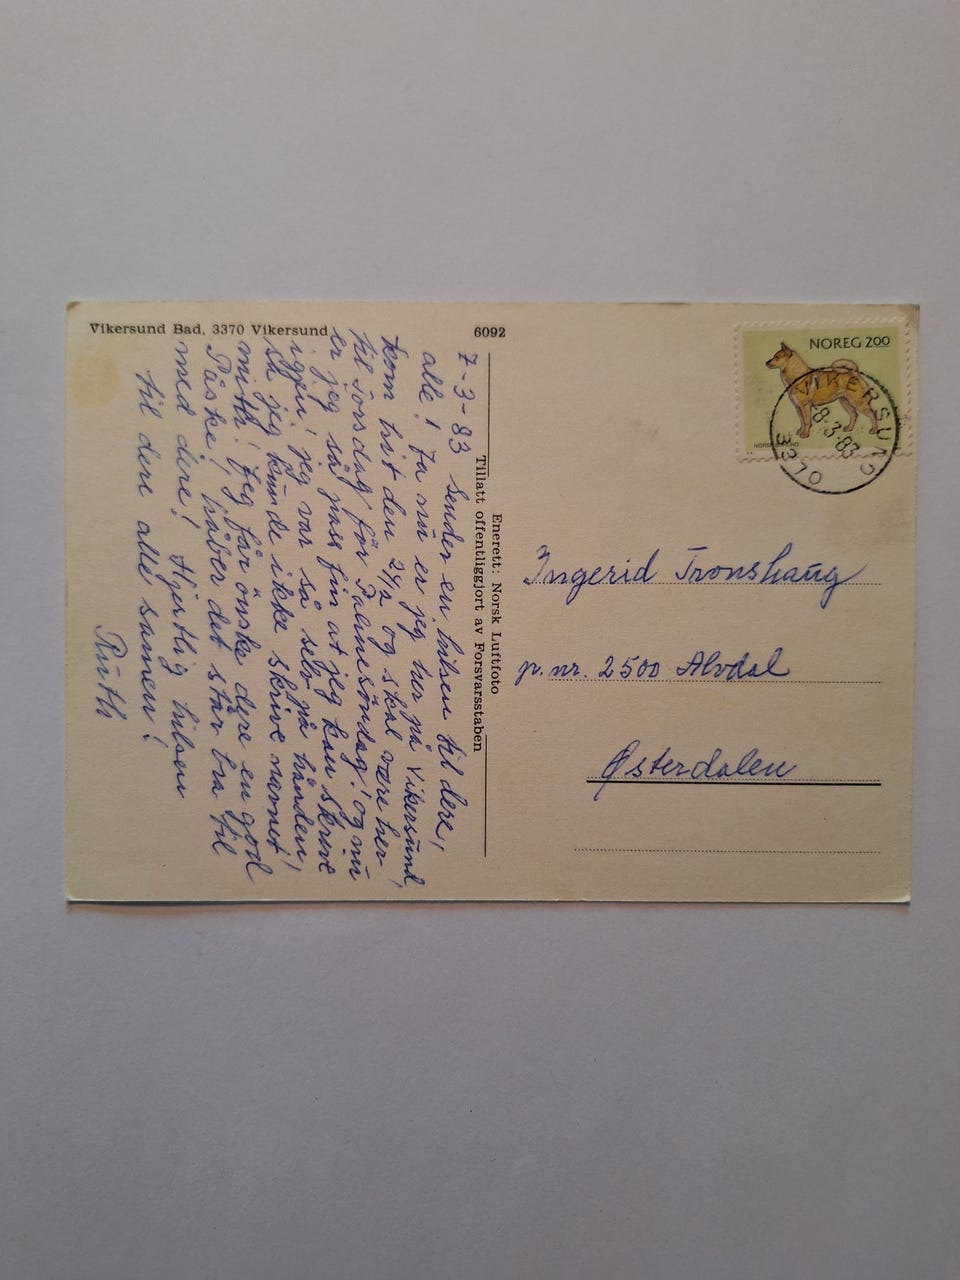 Vikersund Bad, 3370 Vikersund
6092
7-3-83 Sender en hilsen til dere,,
alle! Ja nū er jeg her på Vikersūnd,
kom hist den 24/2 og skal være her
til torsdag før Palmesöndag! og nū
er jeg så pass fin at jeg kan skrive
igjen! jeg var så selv på hånden!
så jeg kūnde ikke skrive navnet
mitt! Jeg får önske dere en god
Påske! håber det står bra til
med dere! Hjertlig hilsen
til dere alle samen!
Rūth
Enerett: Norsk Luftfoto
Tillatt offentliggjort av Forsvarsstaben
NOREG 200
VIKERSUND
8-3-83
3370
Ingerid Tronshaūg
p.nr. 2500 Alvdal
Østerdalen